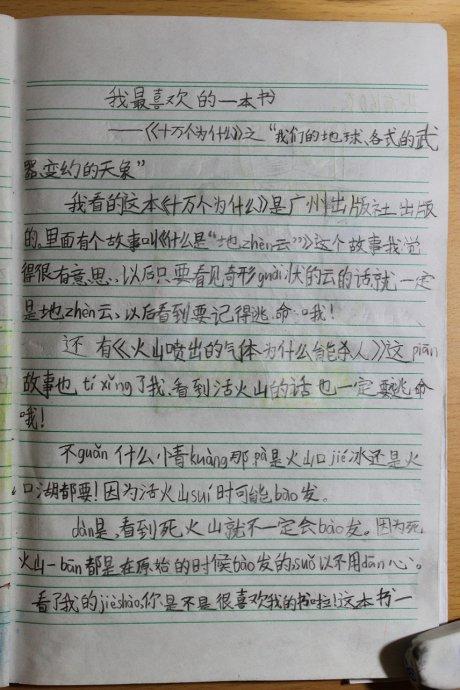 我最喜欢的一本书
——《十万个为什么》之“我们的地球、各式的武
器、变幻的天象”
我看的这本《十万个为什么》是广州出版社出版
的,里面有个故事叫《什么是“地zhèn云”》这个故事我觉
得很有意思、以后只要看见奇形guài状的云的话,就一定
是地zhèn云、以后看到要记得逃命哦!
还有《火山喷出的气体为什么能杀人》这piān
故事也tí xǐng了我、看到活火山的话也一定要逃命
哦!
不guǎn什么情kuàng那pà是火山口jié冰还是火
口湖都要!因为活火山suí时可能bào发。
dàn是,看到死火山就不一定会bào发。因为死
火山一bān都是在原始的时候bào发的,suǒ以不用dān心。
看了我的jièshào,你是不是很喜欢我的书啦!这本书一